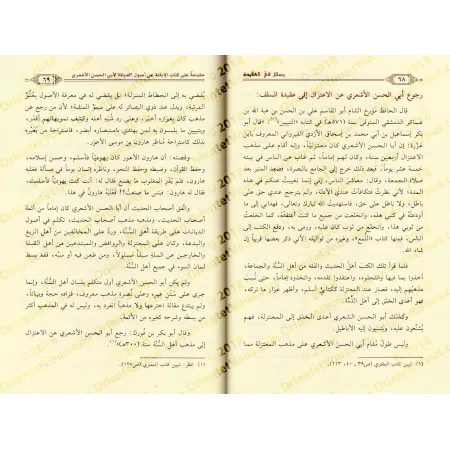 ٦٨
رسائل في العقيدة
رجوع أبي الحسن الأشعري عن الاعتزال إلى عقيدة السلف:
قال الحافظ مؤرخ الشام أبو القاسم علي بن الحسن بن هبة الله بن
عساكر الدمشقي المتوفى سنة (٥٧١هـ) في كتابه «التبيين»(١): قال أبو
بكر إسماعيل بن أبي محمد بن إسحاق الأزدي القيرواني المعروف بابن
عزرة: إن أبا الحسن الأشعري كان معتزليًّا، وإنه أقام على مذهب
الاعتزال أربعين سنة، وكان لهم إمامًا، ثم غاب عن الناس في بيته
خمسة عشر يومًا، فبعد ذلك خرج إلى الجامع بالبصرة، فصعد المنبر بعد
صلاة الجمعة، وقال: معاشر الناس، إني إنما تغيبت عنكم في هذه
المدة؛ لأني نظرت فتكافأت عندي الأدلة، ولم يترجح عندي حق على
باطل، ولا باطل على حق، فاستهديت الله تبارك وتعالى، فهداني إلى ما
أودعته في كتبي هذه، وانخلعت من جميع ما كنت أعتقده، كما انخلعت
من ثوبي هذا، وانخلع من ثوب كان عليه، ورمى به، ودفع الكتب إلى
الناس، فمنها كتاب «اللمع»، وغيره من تواليفه الآتي ذكر بعضها قريبًا إن
شاء الله.
فلما قرأ تلك الكتب أهل الحديث والفقه من أهل السنة والجماعة،
أخذوا بما فيها وانتحلوه، واعتقدوا تقدمه، واتخذوه إمامًا، حتى نسب
مذهبهم إليه، فصار عند المعتزلة ككتابي أسلم، وأظهر عوار ما تركه،
فهو أعدى الخلق إلى أهل الذمة.
وكذلك أبو الحسن الأشعري أعدى الخلق إلى المعتزلة، فهم
يشنعون عليه، وينسبون إليه الأباطيل.
وليس طول مقام أبي الحسن الأشعري على مذهب المعتزلة مما
(١) تبيين كذب المفتري (ص٣٩ ـ ٤١، ١١٣).
مقدمة على كتاب الإبانة عن أصول الديانة لأبي الحسن الأشعري
٦٩
يفضي به إلى انحطاط المنزلة؛ بل يقضي له في معرفة الأصول بعلو
المرتبة، ويدل عند ذوي البصائر له على سمو المنقبة؛ لأن من رجع عن
مذهب كان بعواره أخبر، وعلى رد شبه أهله وكشف تمويهاتهم أقدر،
وبتبيين ما يلبسون به لمن يهتدي باستبصاره أبصر، فاستراحة من يعيره
بذلك كاستراحة مناظر هارون بن موسى الأعور.
وقصته: أن هارون الأعور كان يهوديًّا فأسلم، وحسن إسلامه،
وحفظ القرآن، وضبطه وحفظ النحو، وناظره إنسان يومًا في مسألة فغلبه
هارون، فلم يدر المغلوب ما يصنع فقال له: أنت كنت يهوديًّا فأسلمت،
فقال له هارون: فبئس ما صنعت؟! فغلبه هارون في هذا.
واتفق أصحاب الحديث أن أبا الحسن الأشعري كان إمامًا من أئمة
أصحاب الحديث، ومذهبه مذهب أصحاب الحديث، تكلم في أصول
الديانات على طريقة أهل السنة، ورد على المخالفين من أهل الزيغ
والبدعة، وكان على المعتزلة والروافض والمبتدعين من أهل القبلة
والخارجين عن الملة سيفًا مسلولًا، ومن طعن فيه أو سبه، فقد بسط
لسان السوء في جميع أهل السنة.
ولم يكن أبو الحسن الأشعري أول متكلم بلسان أهل السنة، وإنما
جرى على سنن غيره وعلى نصرة مذهب معروف، فزاده حجة وبيانًا،
ولم يبتدع مقالة اخترعها ولا مذهبًا انفرد به، وليس له في المذهب أكثر
من بسطه وشرحه كغيره من الأئمة.
وقال أبو بكر بن فورك: رجع أبو الحسن الأشعري عن الاعتزال
إلى مذهب أهل السنة سنة (٣٠٠هـ)(١).
(١) انظر: تبيين كذب المفتري (ص١٢٧).